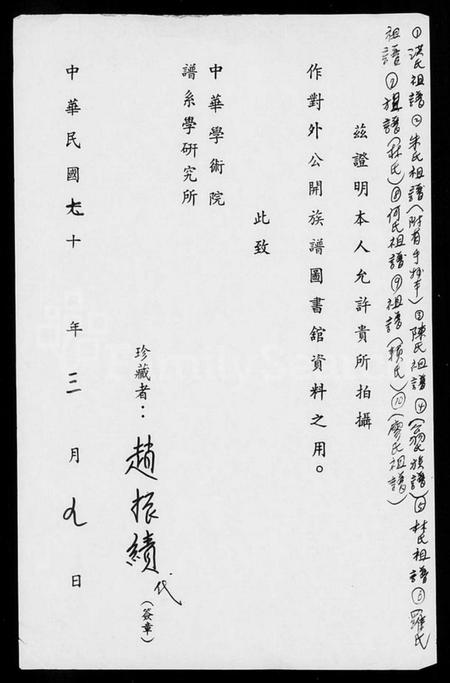 ①洪氏祖譜②朱氏祖譜(附有手抄本)③陳氏祖譜④(翁氏族譜)⑤林氏祖譜⑥羅氏
祖譜⑦祖譜(林氏)⑧何氏祖譜⑨祖譜(賴氏)⑩(廖氏祖譜)
茲證明本人允許貴所拍攝
作對外公開族譜圖書館資料之用。
此致
中華學術院
譜系學研究所
珍藏者：趙振績代(簽章)
中華民國七十年三月九日